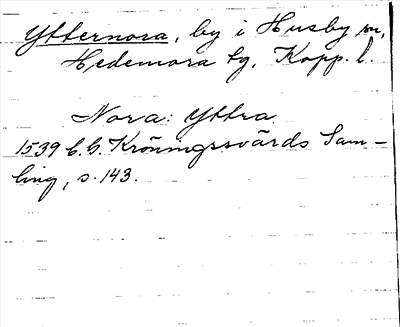 Ytternora, by i Husby sn,
Hedemora tg, Kopp. l.
Nora: Yttra
1539 C. G. Kröningssvärds Sam-
ling, s. 143.